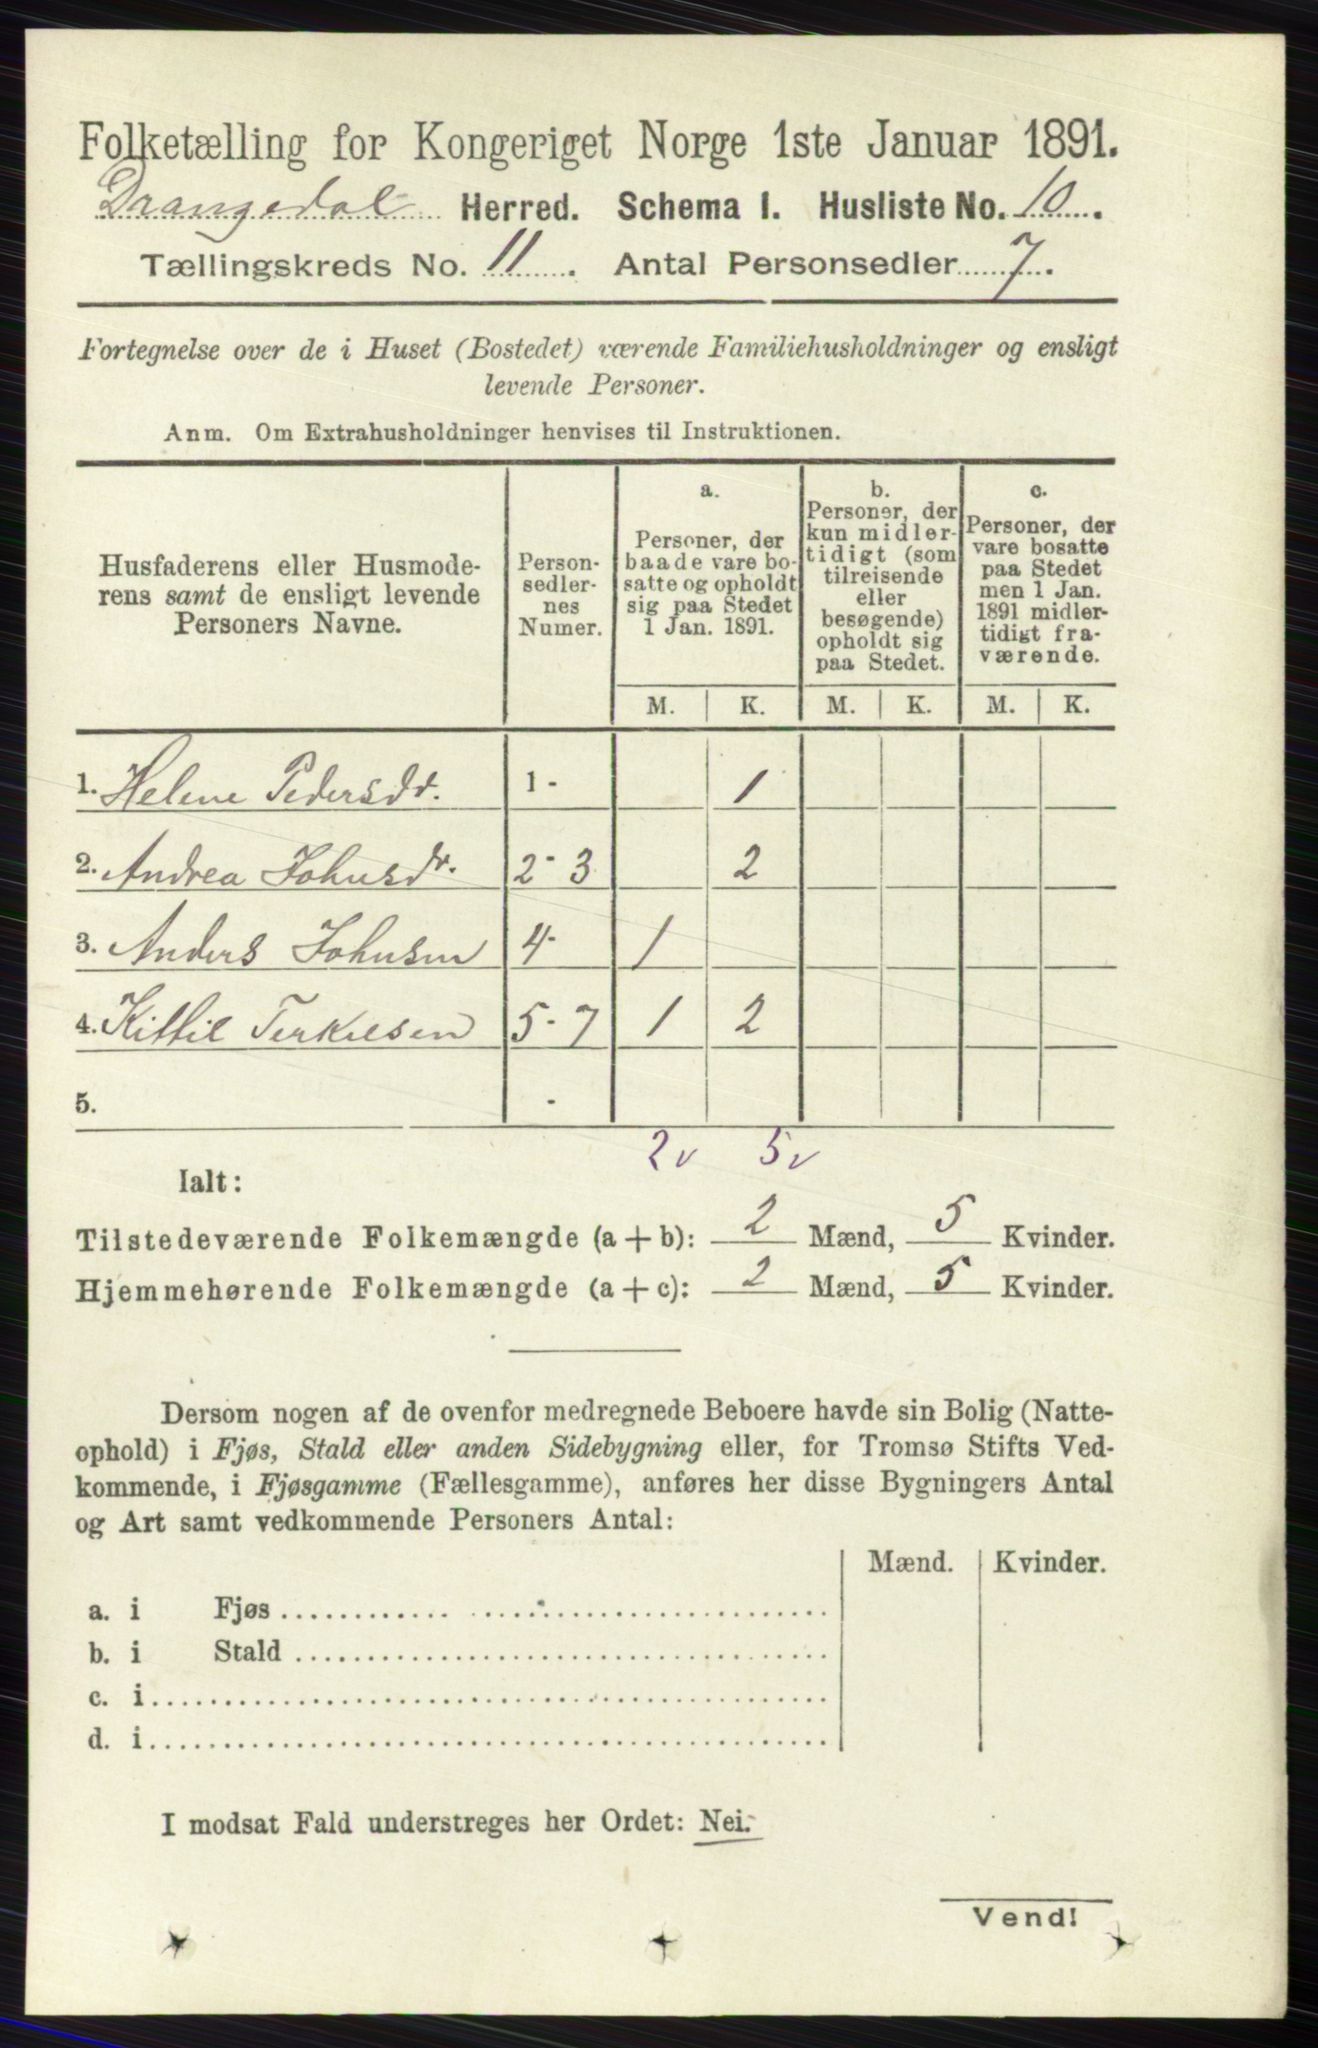 Folketælling for Kongeriget Norge 1ste Januar 1891.
Drangedal Herred. Schema I. Husliste No. 10.
Tællingskreds No. 11. Antal Personsedler 7.
Fortegnelse over de i Huset (Bostedet) værende Familiehusholdninger og ensligt
levende Personer.
Anm. Om Extrahusholdninger henvises til Instruktionen.
Husfaderens eller Husmode-
rens samt de ensligt levende
Personers Navne.
Person-
sedler-
nes
Numer.
a.
Personer, der
baade vare bo-
satte og opholdt
sig paa Stedet
1 Jan. 1891.
b.
Personer, der
kun midler-
tidigt (som
tilreisende
eller
besøgende)
opholdt sig
paa Stedet.
c.
Personer, der
vare bosatte
paa Stedet
men 1 Jan.
1891 midler-
tidigt fra-
værende.
M. K. M. K. M. K.
1. Helene Pedersdr. 1 - 1
2. Andrea Johnsdr. 2 - 3 2
3. Anders Johnsen 4 - 1
4. Kittil Terkelsen 5 - 7 1 2
5. -
2v 5v
Ialt:
Tilstedeværende Folkemængde (a + b): 2 Mænd, 5 Kvinder.
Hjemmehørende Folkemængde (a + c): 2 Mænd, 5 Kvinder.
Dersom nogen af de ovenfor medregnede Beboere havde sin Bolig (Natte-
ophold) i Fjøs, Stald eller anden Sidebygning eller, for Tromsø Stifts Ved-
kommende, i Fjøsgamme (Fællesgamme), anføres her disse Bygningers Antal
og Art samt vedkommende Personers Antal:
Mænd. Kvinder.
a. i Fjøs
b. i Stald
c. i
d. i
I modsat Fald understreges her Ordet: Nei.
Vend!